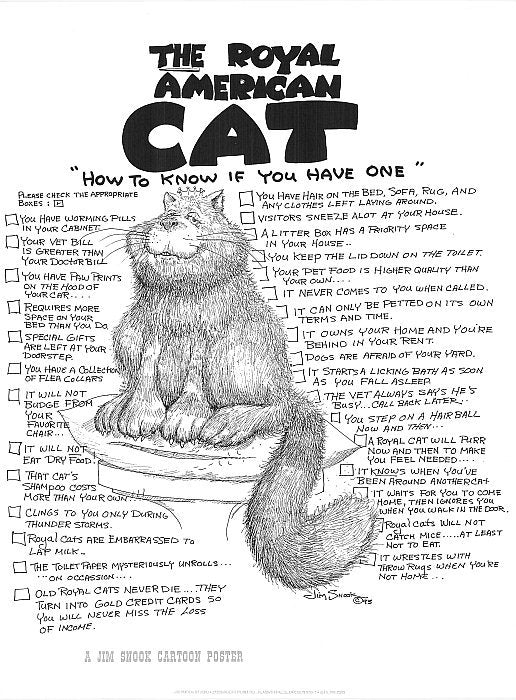 THE ROYAL
AMERICAN
CAT
"HOW TO KNOW IF YOU HAVE ONE"
PLEASE CHECK THE APPROPRIATE
BOXES:
YOU HAVE WORMING PILLS
IN YOUR CABINET
YOUR VET BILL
IS GREATER THAN
YOUR DOCTOR BILL
YOU HAVE PAW PRINTS
ON THE HOOD OF
YOUR CAR....
REQUIRES MORE
SPACE ON YOUR
BED THAN YOU DO.
SPECIAL GIFTS
ARE LEFT AT YOUR
DOORSTEP.
YOU HAVE A COLLECTION
OF FLEA COLLARS
IT WILL NOT
BUDGE FROM
YOUR
FAVORITE
CHAIR...
IT WILL NOT
EAT DRY FOOD!
THAT CAT'S
SHAMPOO COSTS
MORE THAN YOUR OWN!
CLINGS TO YOU ONLY DURING
THUNDER STORMS.
ROYAL CATS ARE EMBARRASSED TO
LAP MILK..
THE TOILET PAPER MYSTERIOUSLY UNROLLS...
...ON OCCASSION....
OLD ROYAL CATS NEVER DIE....THEY
TURN INTO GOLD CREDIT CARDS SO
YOU WILL NEVER MISS THE LOSS
OF INCOME.
YOU HAVE HAIR ON THE BED, SOFA, RUG, AND
ANY CLOTHES LEFT LAYING AROUND.
VISITORS SNEEZE ALOT AT YOUR HOUSE.
A LITTER BOX HAS A PRIORITY SPACE
IN YOUR HOUSE..
YOU KEEP THE LID DOWN ON THE TOILET.
YOUR PET FOOD IS HIGHER QUALITY THAN
YOUR OWN....
IT NEVER COMES TO YOU WHEN CALLED.
IT CAN ONLY BE PETTED ON IT'S OWN
TERMS AND TIME.
IT OWNS YOUR HOME AND YOU'RE
BEHIND IN YOUR RENT.
DOGS ARE AFRAID OF YOUR YARD.
IT STARTS A LICKING BATH AS SOON
AS YOU FALL ASLEEP.
THE VET ALWAYS SAYS HE'S
BUSY...CALL BACK LATER..
YOU STEP ON A HAIR BALL
NOW AND THEN...
A ROYAL CAT WILL PURR
NOW AND THEN TO MAKE
YOU FEEL NEEDED....
IT KNOWS WHEN YOU'VE
BEEN AROUND ANOTHER CAT
IT WAITS FOR YOU TO COME
HOME, THEN IGNORES YOU
WHEN YOU WALK IN THE DOOR.
ROYAL CATS WILL NOT
CATCH MICE.....AT LEAST
NOT TO EAT.
IT WRESTLES WITH
THROW RUGS WHEN YOU'RE
NOT HOME...
Jim Snook
©95
A JIM SNOOK CARTOON POSTER